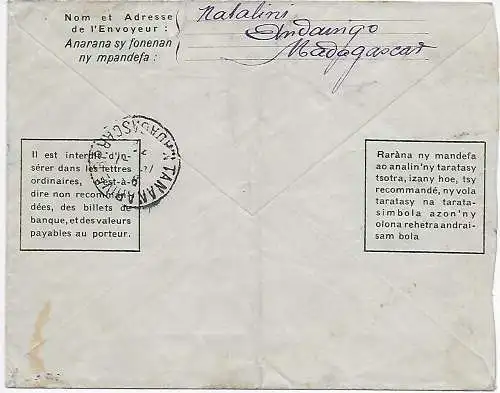 Nom et Adresse
de l'Envoyeur :
Anarana sy fonenan
ny mpandefa :
Natalini
Andaingo
Madagascar
Il est interdit d'in-
sérer dans les lettres
ordinaires, c'est-à-
dire non recomman-
dées, des billets de
banque, et des valeurs
payables au porteur.
TANANARIVE
MADAGASCAR
Raràna ny mandefa
ao analin'ny taratasy
tsotra, izany hoe, tsy
recommandé, ny vola
taratasy na tarata-
simbola azon'ny
olona rehetra andrai-
sam bola